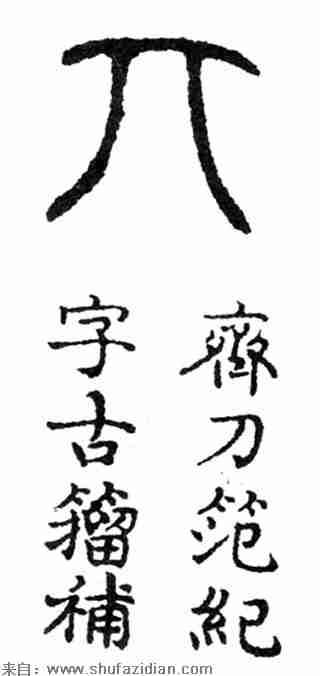 丌
齊刀笵紀
字古籀補
来自：www.shufazidian.com